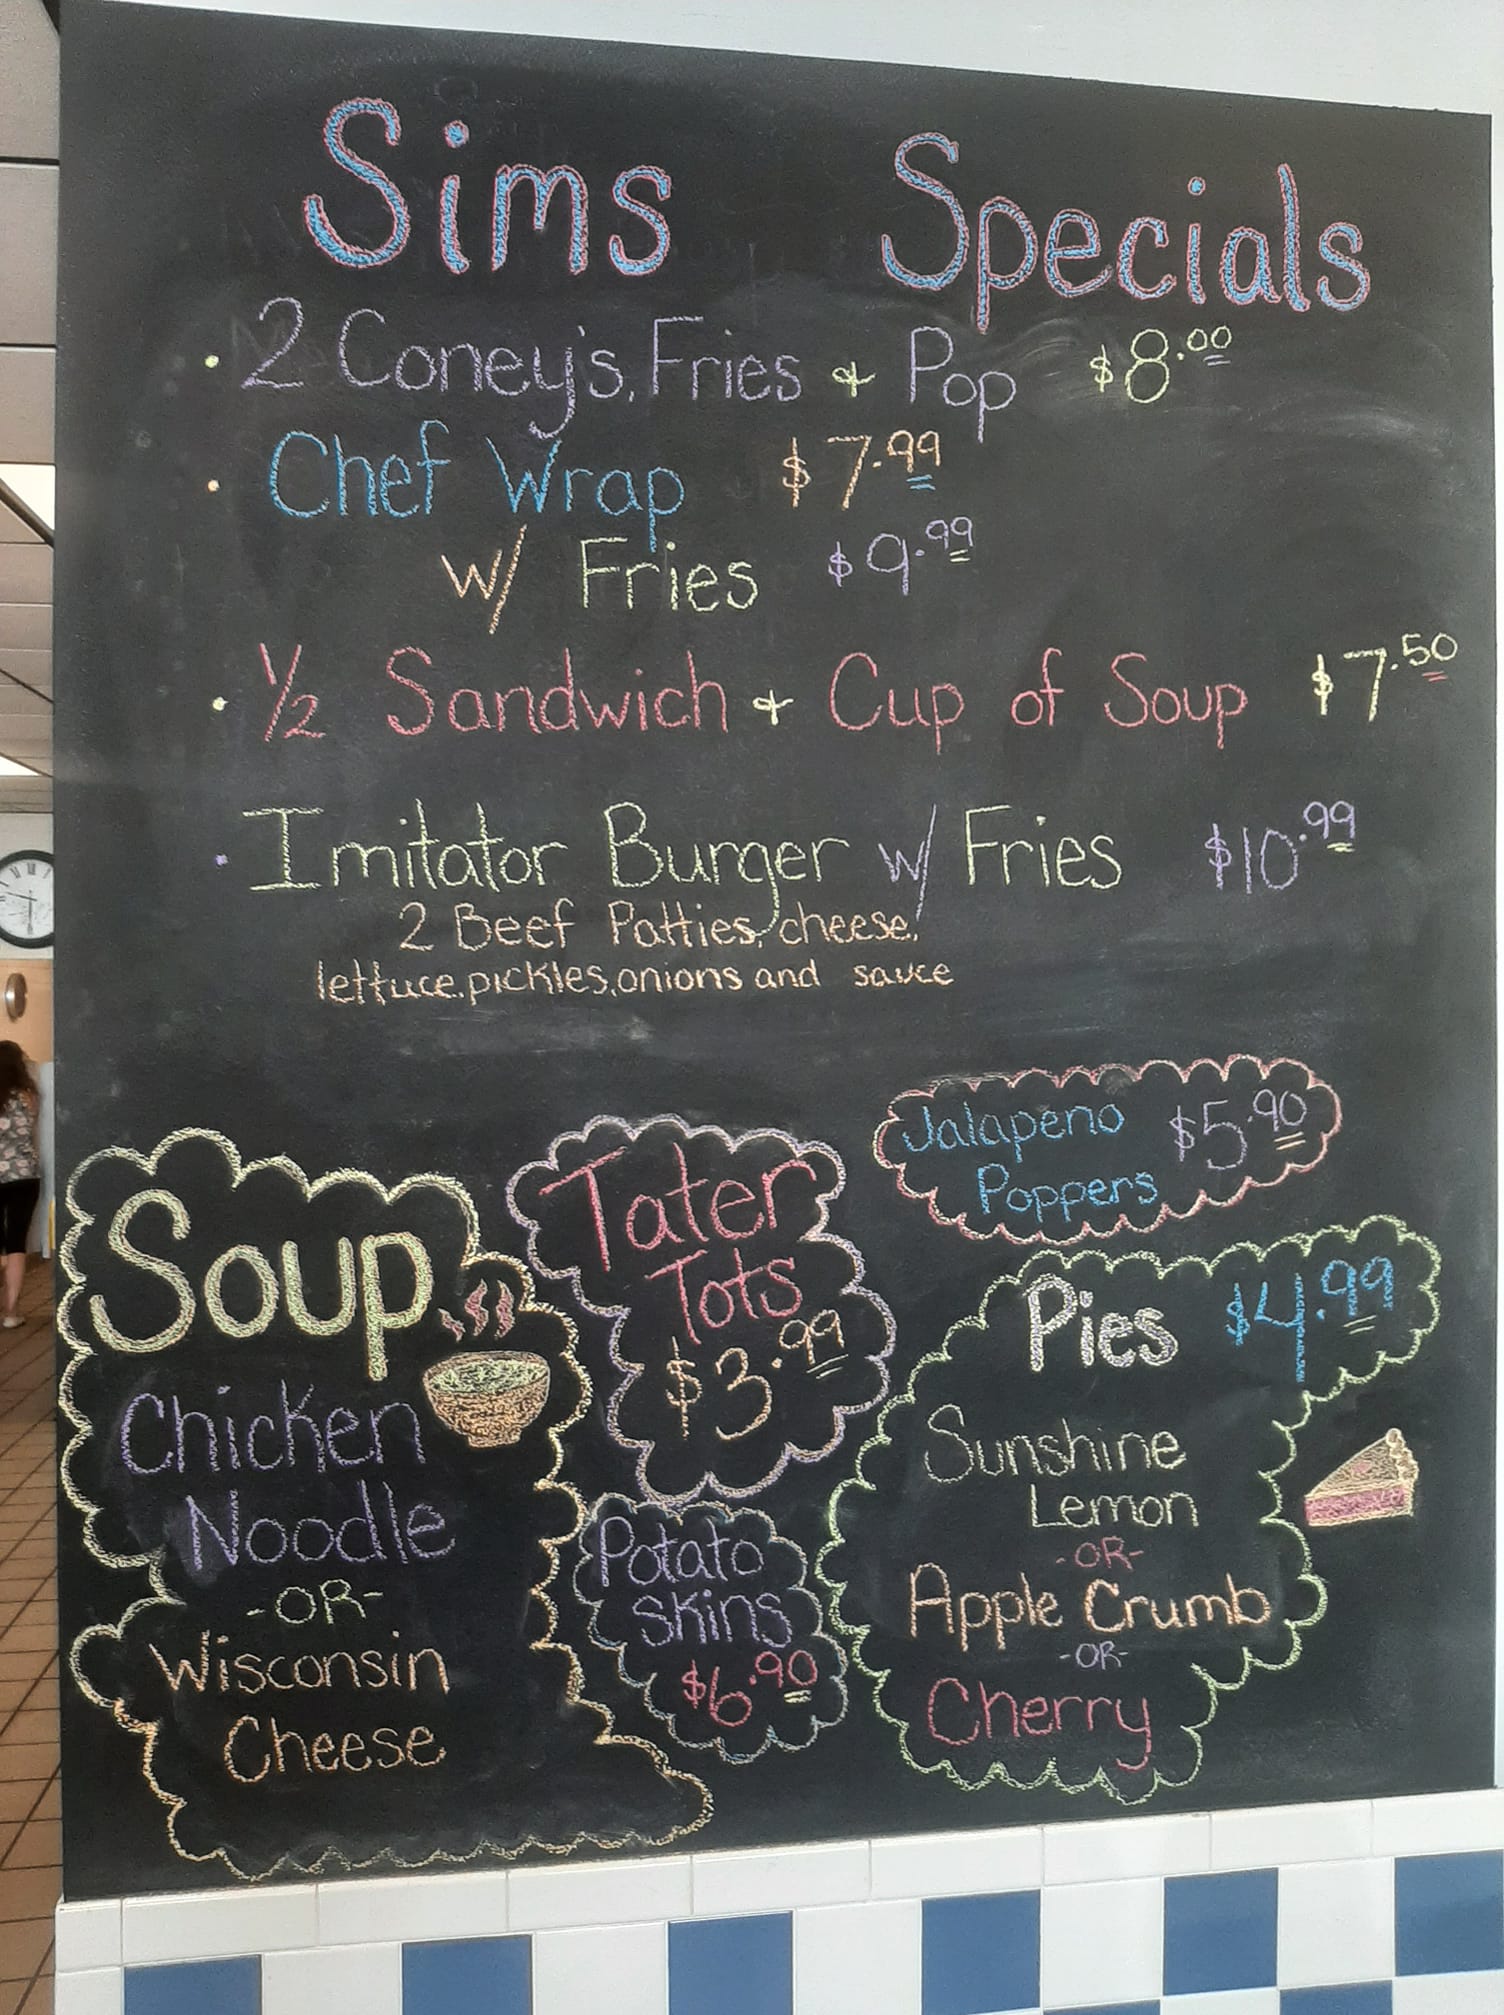 Sims Specials
• 2 Coney's, Fries & Pop $8.00
• Chef Wrap $7.99
w/ Fries $9.99
• 1/2 Sandwich & Cup of Soup $7.50
• Imitator Burger w/ Fries $10.99
2 Beef Patties, cheese,
lettuce, pickles, onions and sauce
Soup
Chicken
Noodle
-OR-
Wisconsin
Cheese
Tater
Tots
$3.99
Potato
Skins
$6.90
Jalapeno $5.90
Poppers
Pies $4.99
Sunshine
Lemon
-OR-
Apple Crumb
-OR-
Cherry